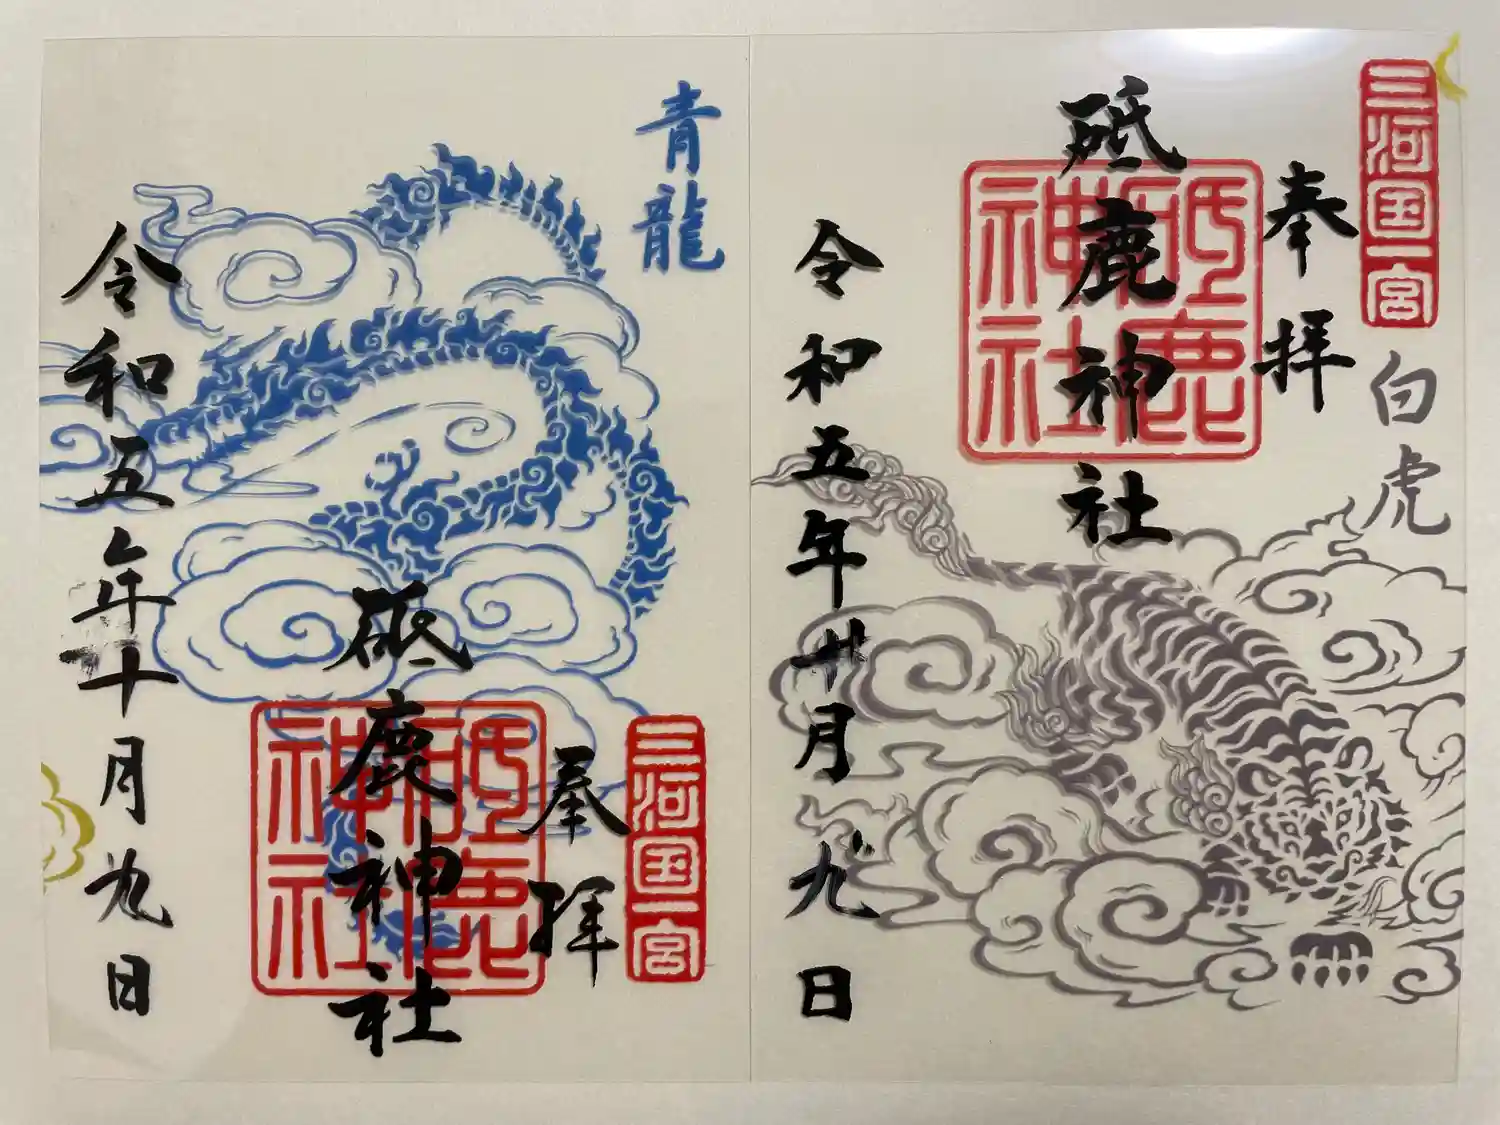 三河国一宮
白虎
奉拝
砥鹿神社
砥鹿神社
令和五年十月九日
青龍
三河国一宮
奉拝
砥鹿神社
砥鹿神社
令和五年十月九日